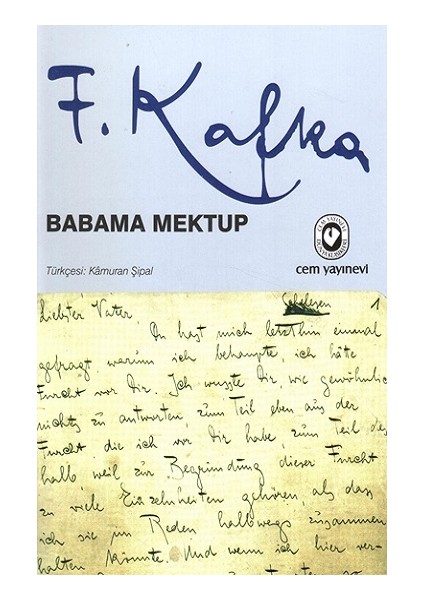 F. Kafka
BABAMA MEKTUP
Türkçesi: Kâmuran Şipal
cem yayınevi
Schelesen 1
Liebster Vater,
Du hast mich letzthin einmal
gefragt, warum ich behaupte, ich hätte
Furcht vor Dir. Ich wusste Dir, wie gewöhnlic
nichts zu antworten, zum Teil eben aus der
Furcht die ich vor Dir habe, zum Teil des
halb weil zur Begründung dieser Furcht
zu viele Einzelnheiten gehören, als dass
ich sie im Reden halbwegs zusammen
halten könnte. Und wenn ich hier ver-